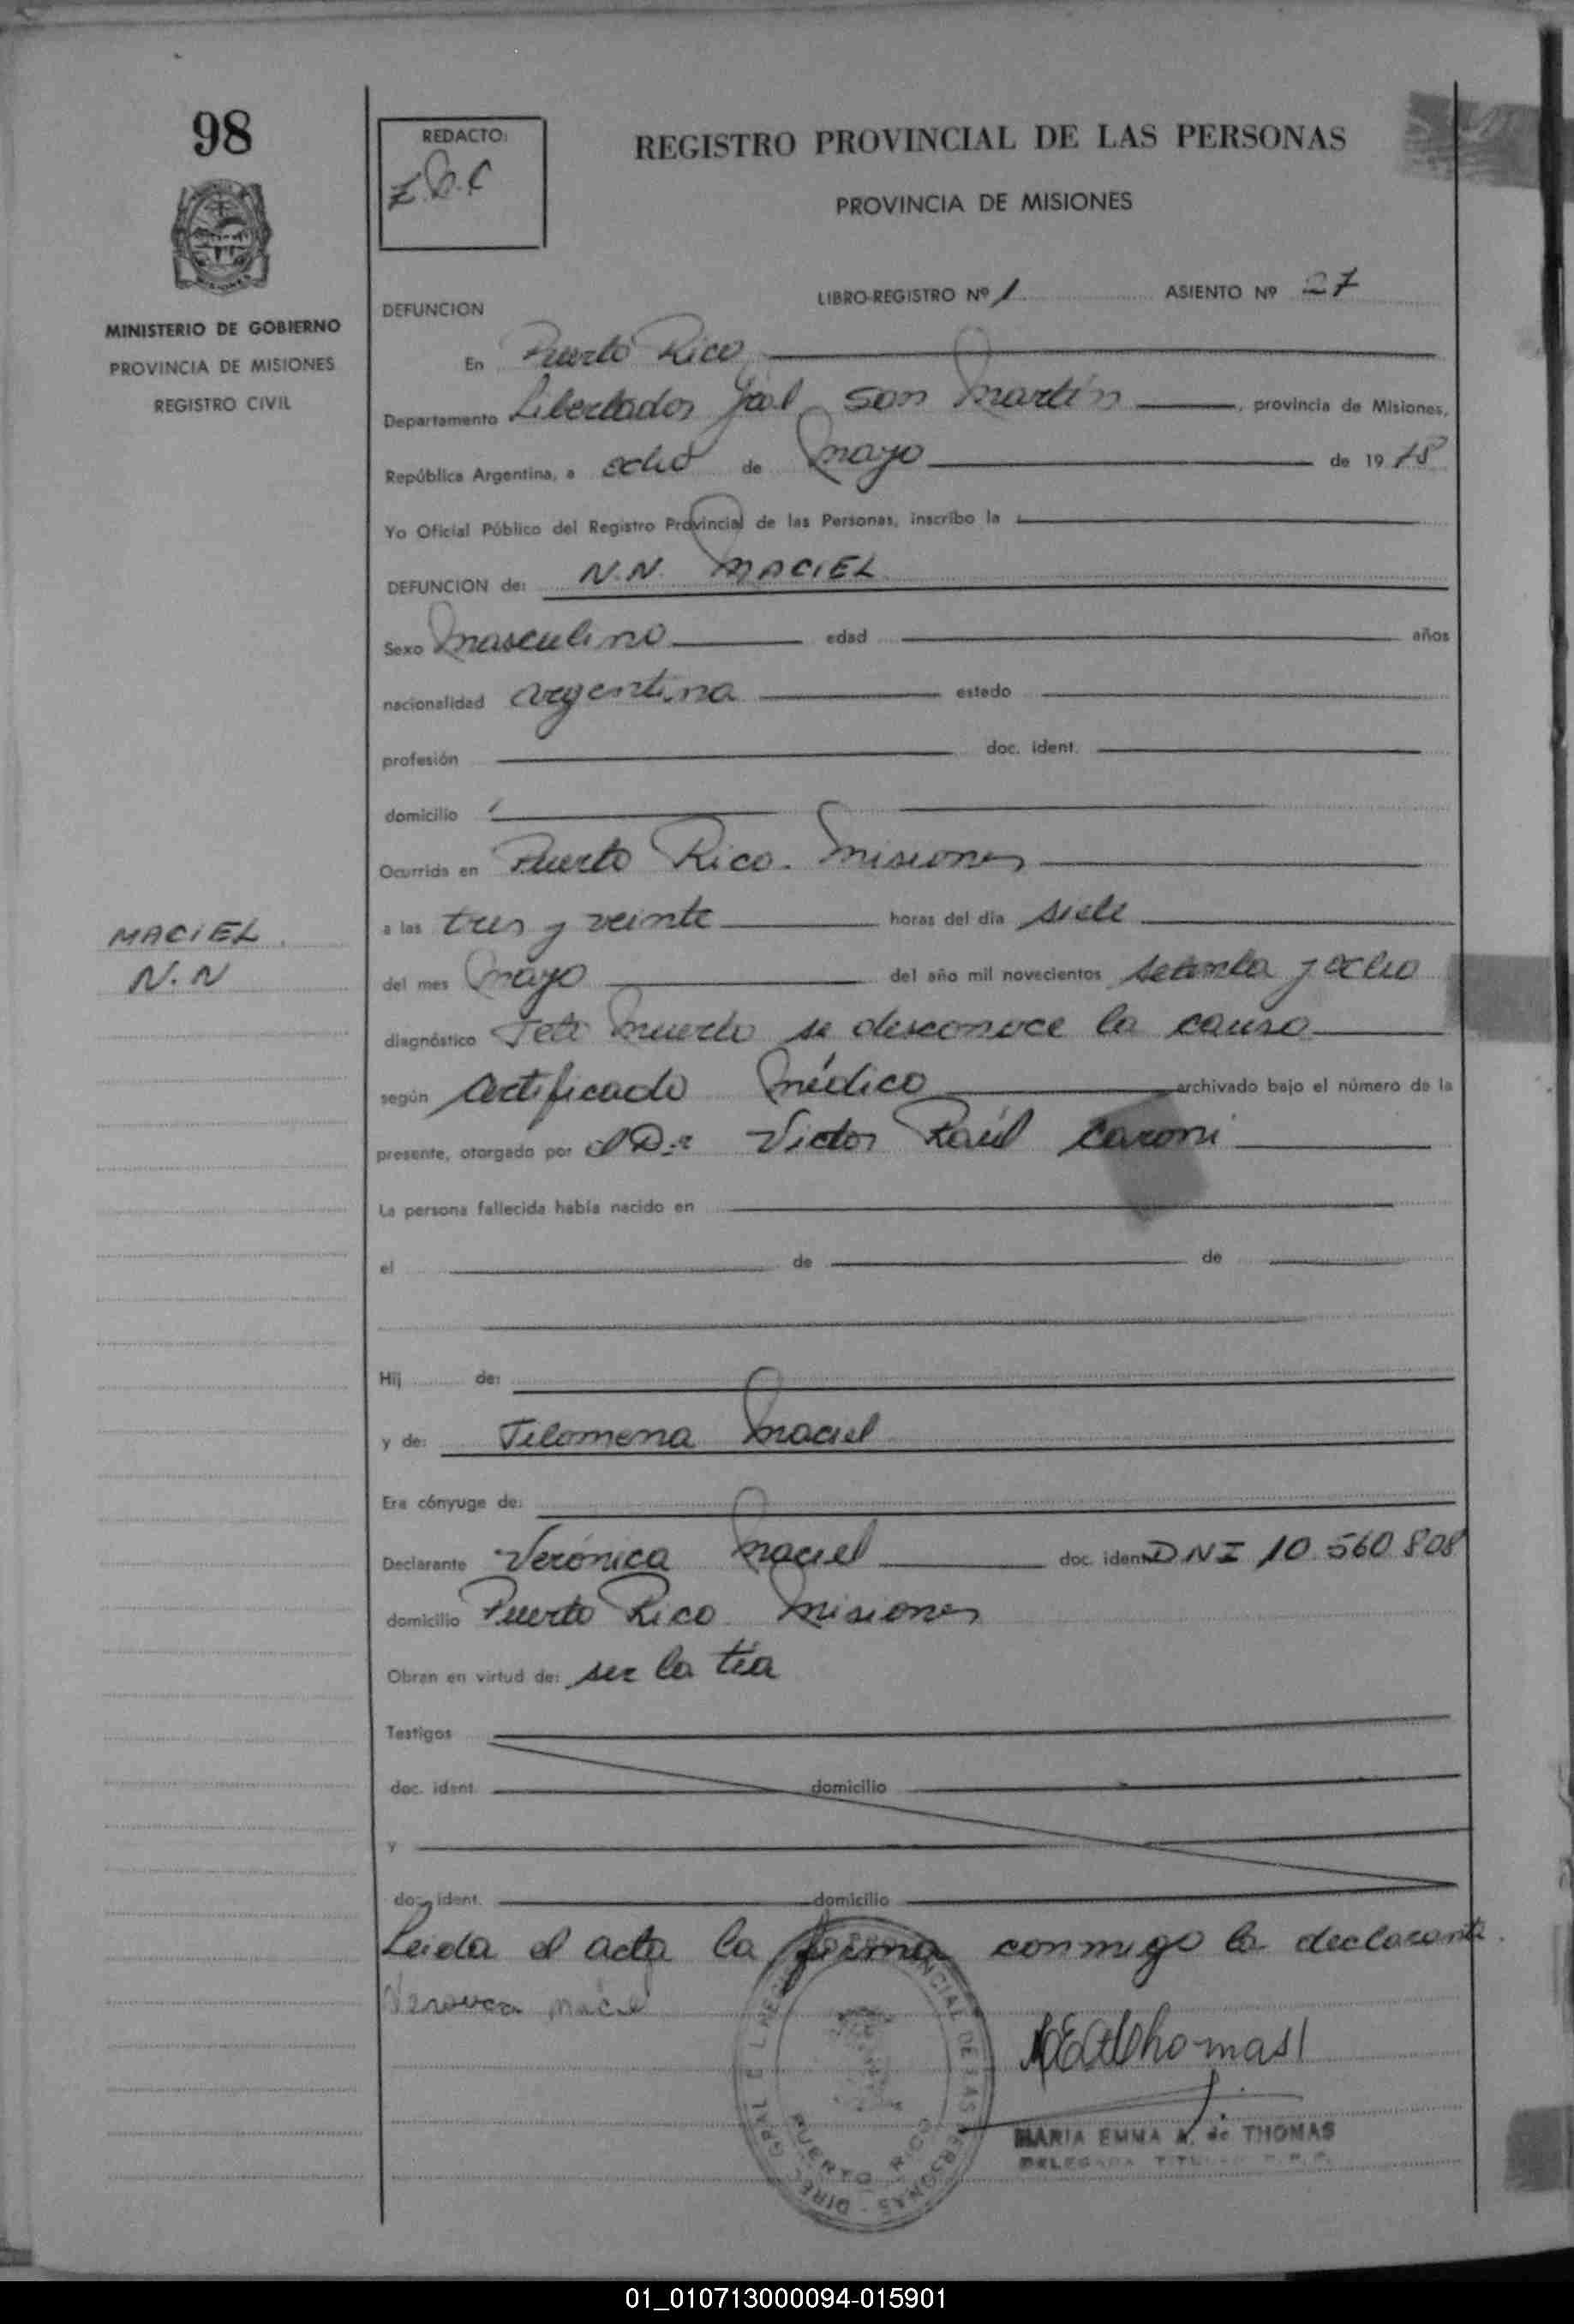 98
REDACTO:
Z.B.C
REGISTRO PROVINCIAL DE LAS PERSONAS
PROVINCIA DE MISIONES
MINISTERIO DE GOBIERNO
PROVINCIA DE MISIONES
REGISTRO CIVIL
DEFUNCION LIBRO-REGISTRO Nº 1 ASIENTO Nº 27
En Puerto Rico
Departamento Libertador Gral San Martín, provincia de Misiones,
República Argentina, a ocho de mayo de 19 78
Yo Oficial Público del Registro Provincial de las Personas, inscribo la
DEFUNCION de: N.N. MACIEL
Sexo masculino edad años
nacionalidad argentina estado
profesión doc. ident.
domicilio
Ocurrida en Puerto Rico. Misiones
MACIEL
N.N
a las tres y veinte horas del día siete
del mes mayo del año mil novecientos setenta y ocho
diagnóstico Feto muerto se desconoce la causa
según Certificado Médico archivado bajo el número de la
presente, otorgado por el Dr Victor Raúl Caroni
La persona fallecida había nacido en
el de de
Hij de:
y de: Filomena Maciel
Era cónyuge de:
Declarante Verónica Maciel doc. ident. DNI 10.560.808
domicilio Puerto Rico Misiones
Obran en virtud de: ser la tía
Testigos
doc. ident. domicilio
y
doc. ident. domicilio
Leida el acta la firma conmigo la declarante.
Veronica Maciel
MEAdThomas
MARIA EMMA A. de THOMAS
DELEGADA TITULAR R.P.P.
DIREC. GRAL. DEL REGISTRO PROVINCIAL DE LAS PERSONAS
PUERTO RICO
01_010713000094-015901